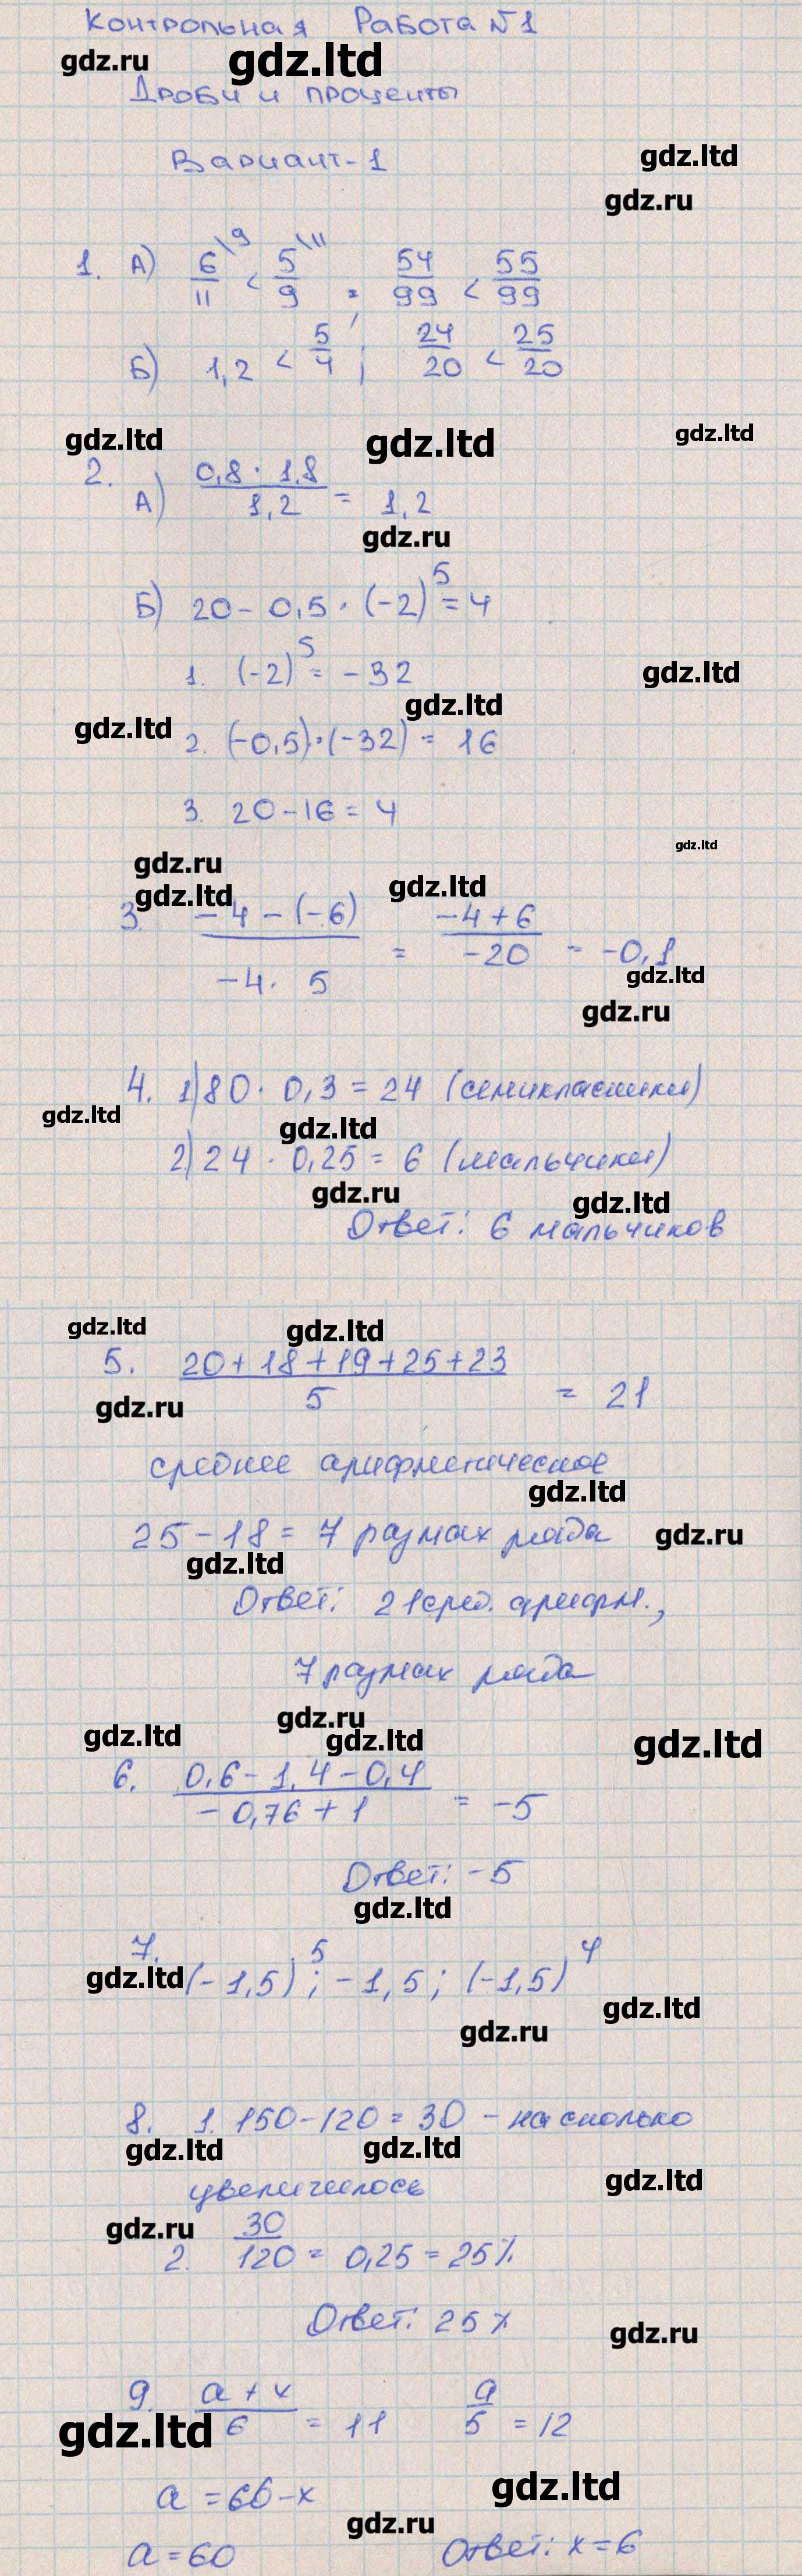 Контрольная Работа №1
gdz.ru gdz.ltd
Дроби и проценты
Вариант-1
gdz.ltd
gdz.ru
1. А) 6/11 \9 < 5/9 \11 ; 54/99 < 55/99
Б) 1,2 < 5/4 ; 24/20 < 25/20
gdz.ltd gdz.ltd gdz.ltd
2. А) 0,8 · 1,8 / 1,2 = 1,2
gdz.ru
Б) 20 - 0,5 · (-2)^5 = 4
1. (-2)^5 = -32
gdz.ltd
gdz.ltd
gdz.ltd
2. (-0,5)·(-32) = 16
3. 20-16 = 4
gdz.ltd
gdz.ru
gdz.ltd gdz.ltd
3. -4-(-6) / -4· 5 = -4+6 / -20 = -0,1
gdz.ltd
gdz.ru
4. 1) 80 · 0,3 = 24 (семикласники)
gdz.ltd
gdz.ltd
2) 24 · 0,25 = 6 (мальчики)
gdz.ru gdz.ltd
Ответ: 6 мальчиков
gdz.ltd gdz.ltd
5. 20+18+19+25+23 / 5 = 21
gdz.ru
среднее арифметическое
gdz.ltd
25-18 = 7 размах ряда
gdz.ru
gdz.ltd
Ответ: 21 сред. арифм.,
7 размах ряда
gdz.ru
gdz.ltd gdz.ltd gdz.ltd
6. 0,6-1,4-0,4 / -0,76+1 = -5
Ответ: -5
gdz.ltd
7. (-1,5)^5; -1,5; (-1,5)^4
gdz.ltd
gdz.ltd
gdz.ru
8. 1. 150-120 = 30 - на сколько
gdz.ltd gdz.ltd
увеличилось
gdz.ltd
gdz.ru
2. 30/120 = 0,25 = 25%
Ответ: 25%
gdz.ru
9. a+x / 6 = 11 a/5 = 12
gdz.ltd
a = 66-x
gdz.ltd
gdz.ru
a = 60 Ответ: x=6